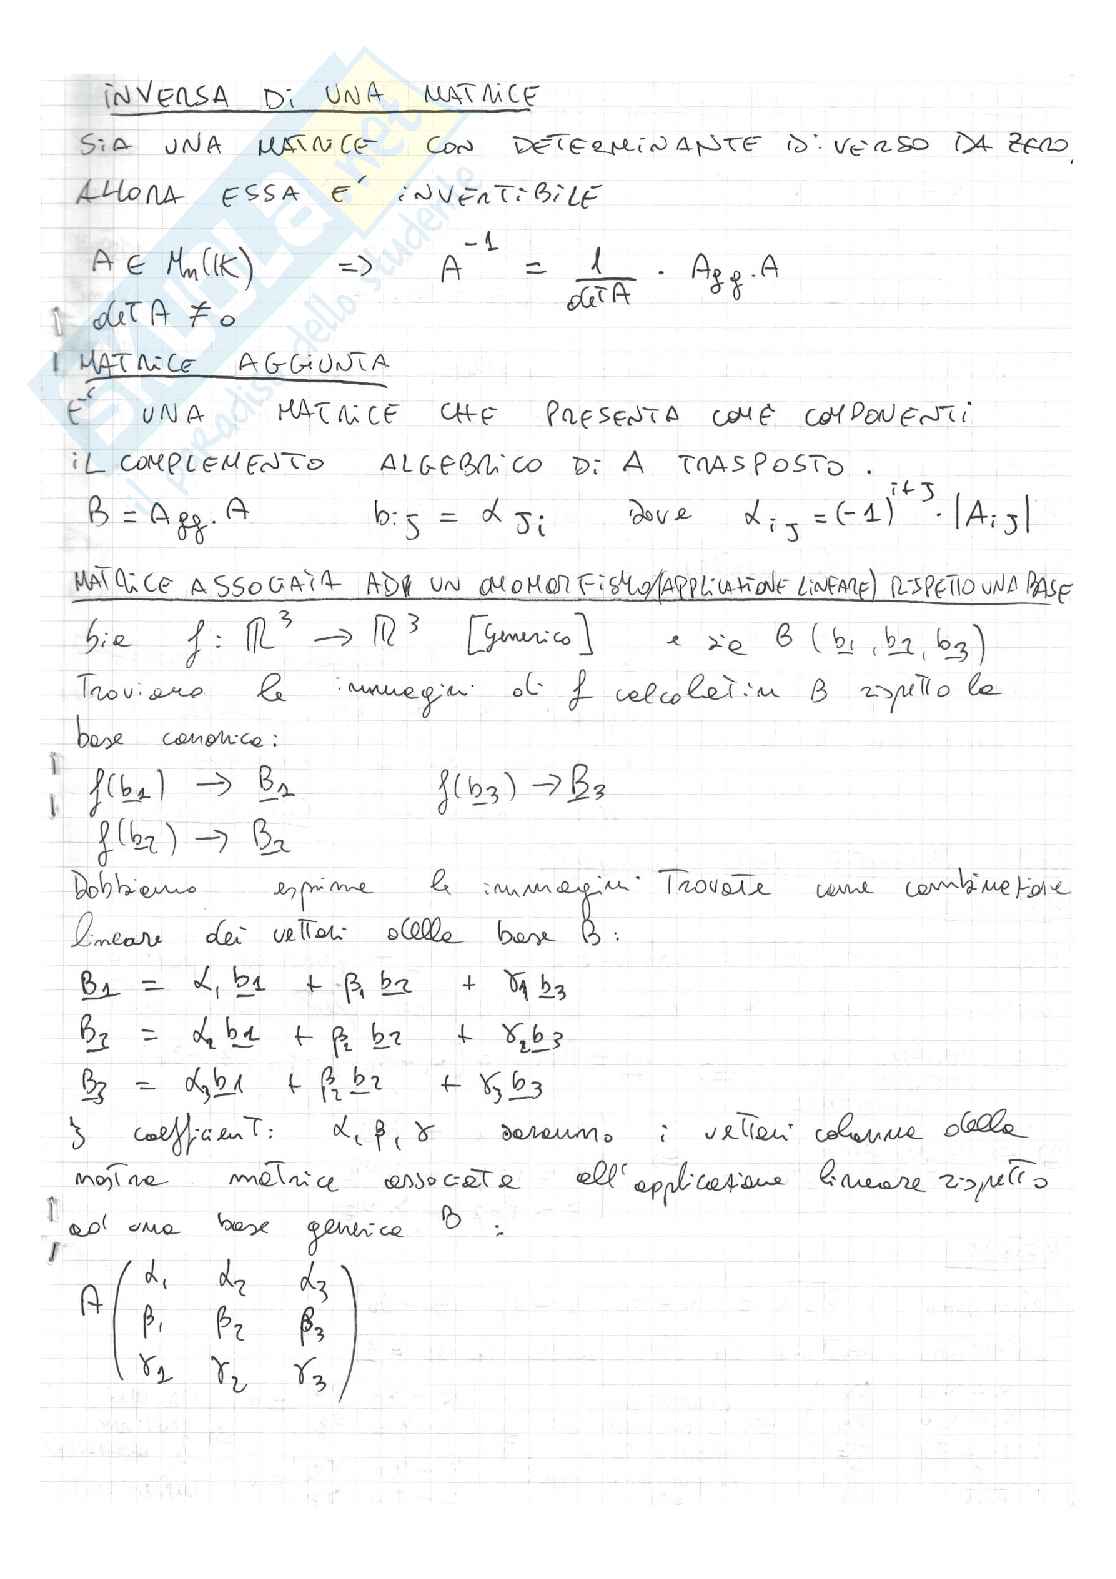 INVERSA DI UNA MATRICE
SIA UNA MATRICE CON DETERMINANTE DIVERSO DA ZERO,
ALLORA ESSA E' INVERTIBILE
A ∈ Mn(IK) => A^-1 = 1/detA · Agg.A
det A ≠ 0
MATRICE AGGIUNTA
E' UNA MATRICE CHE PRESENTA COME COMPONENTI
IL COMPLEMENTO ALGEBRICO DI A TRASPOSTO.
B = Agg.A bij = αji dove αij = (-1)^i+j · |Aij|
MATRICE ASSOCIATA AD UN OMOMORFISMO (APPLICAZIONE LINEARE) RISPETTO UNA BASE
Sia f: ℝ^3 → ℝ^3 [Generico] e sia B (b1, b2, b3)
Troviamo le immagini di f calcolate in B rispetto la
base canonica:
f(b1) → B1 f(b3) → B3
f(b2) → B2
Dobbiamo esprime le immagini Trovate come combinazione
lineare dei vettori della base B:
B1 = α1 b1 + β1 b2 + γ1 b3
B2 = α2 b1 + β2 b2 + γ2 b3
B3 = α3 b1 + β2 b2 + γ3 b3
I coefficienti α, β, γ saranno i vettori colonna della
nostra matrice associata all'applicazione lineare rispetto
ad una base generica B:
A ( α1 α2 α3
β1 β2 β3
γ1 γ2 γ3 )
SKUOLA.net
il paradiso dello studente